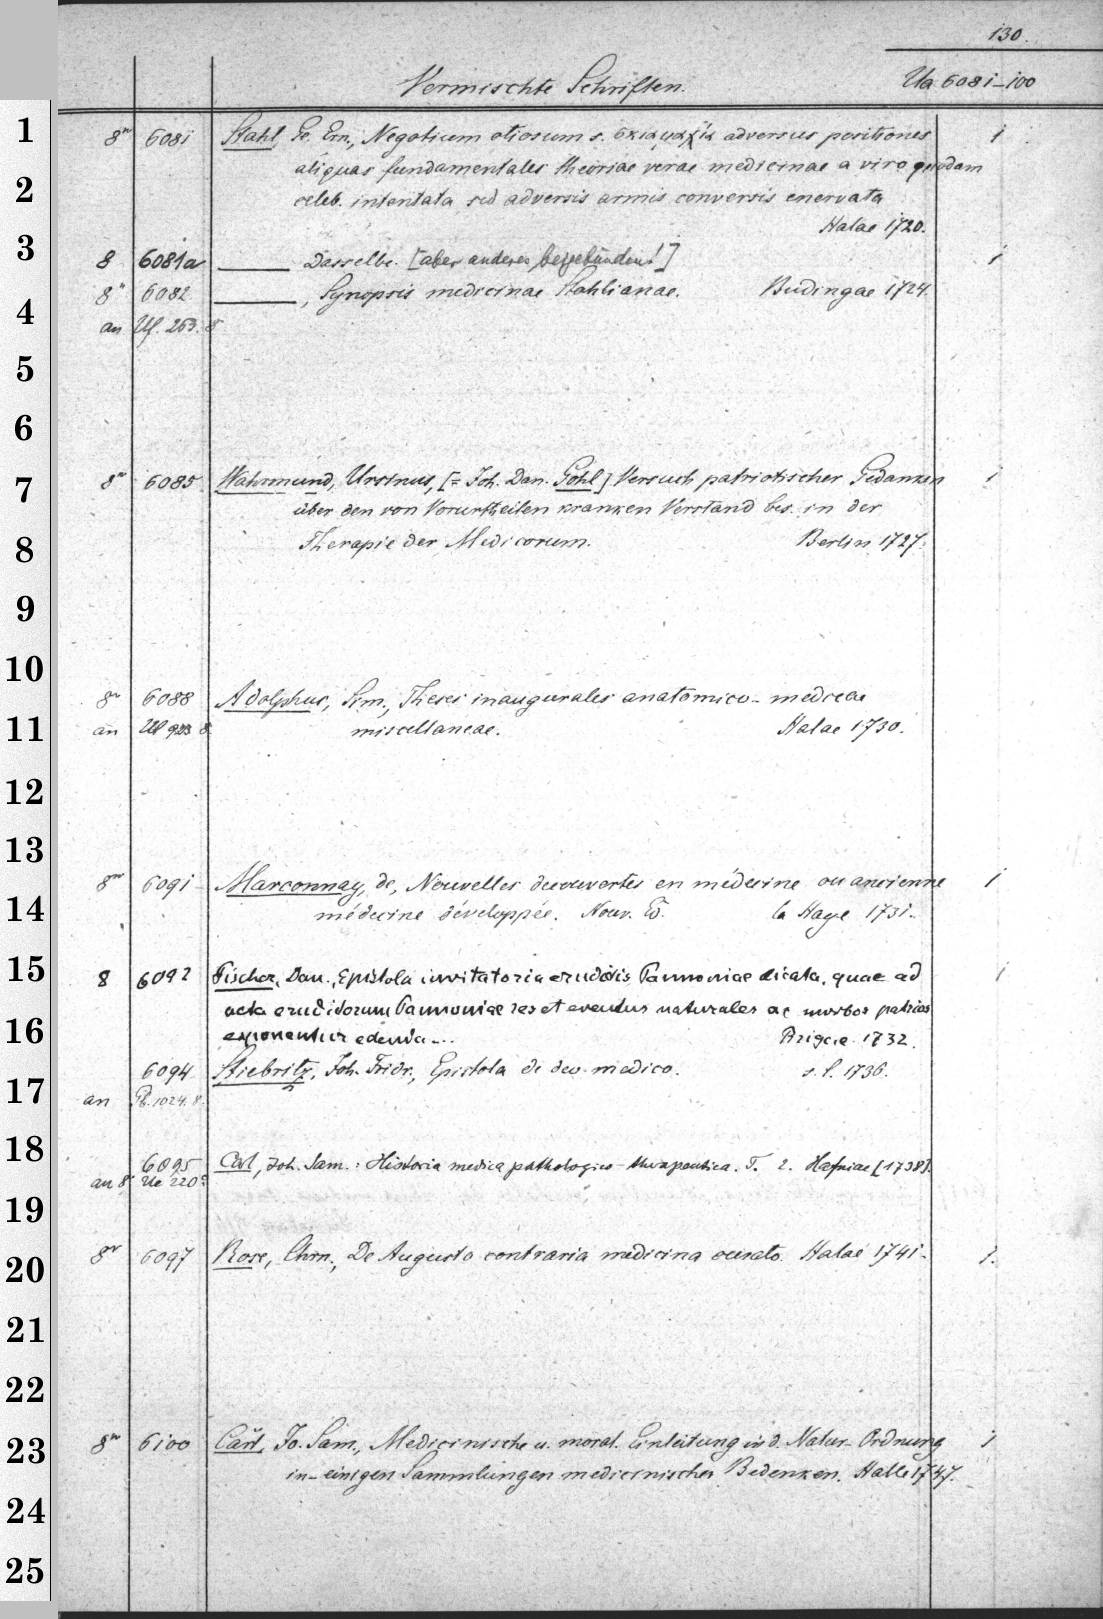 130.
Vermischte Schriften. Ua 6081–100
1
8° 6081 Stahl, Ge. Ern., Negotium otiosum s. σκιαμαχία adversus positiones 1
aliquas fundamentales theoriae verae medicinae a viro quodam
2
celeb. intentata sed adversis armis conversis enervata
Halae 1720.
3
8 6081a ——— Dasselbe. [aber anderes beigebunden!] 1
8° 6082 ———, Synopsis medicinae Stahlianae. Budingae 1724.
4
an Uf. 253. 8°
5
6
7
8° 6085 Wahrmund, Ursinus, [= Joh. Dan. Gohl] Versuch patriotischer Gedanken 1
über den von Vorurtheilen kranken Verstand bes. in der
8
Therapie der Medicorum. Berlin 1727.
9
10
8° 6088 Adolphus, Sim., Theses inaugurales anatomico-medicae
11
an Ul 933 8. miscellaneae. Halae 1730.
12
13
8° 6091 Marconnay, de, Nouvelles decouvertes en médecine ou ancienne 1
14
médecine développée. Nouv. Ed. la Haye 1731.
15
8 6092 Fischer, Dan., Epistola invitatoria eruditis Pannoniae dicata, quae ad 1
acta eruditorum Pannoniae res et eventus naturales ac morbos patrios
16
exponentur edenda... Brigae 1732.
6094 Stiebritz, Joh. Fridr., Epistola de deo medico. s. l. 1736.
17
an 1024. 8.
18
6095 Carl, Joh. Sam.: Historia medica pathologico-therapeutica. T. 2. Hafniae [1738].
an 8° Ue 220
19
20
8° 6097 Rose, Chrn., De Augusto contraria medicina curato. Halae 1741. 1.
21
22
23
8° 6100 Carl, Jo. Sam., Medicinische u. moral. Einleitung in d. Natur-Ordnung 1
in einigen Sammlungen medicinischer Bedenken. Halle 1747.
24
25